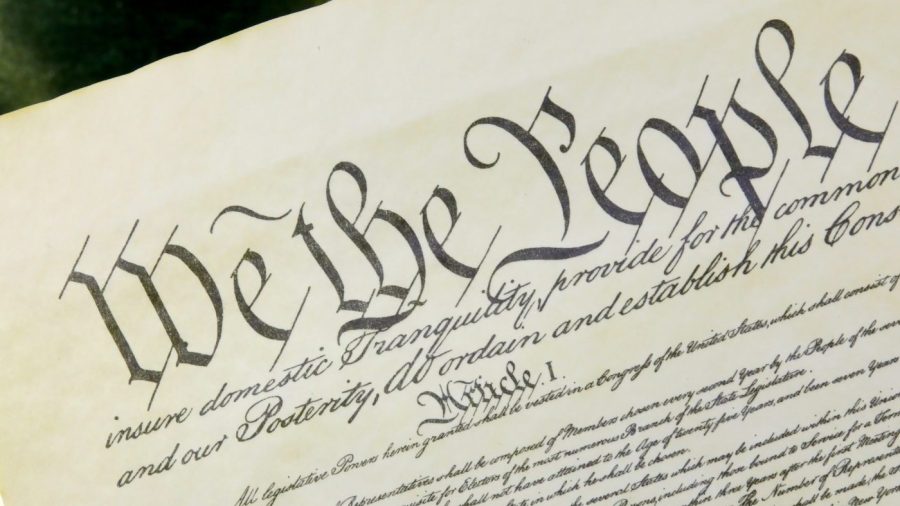 We the People
insure domestic Tranquility, provide for the common
and our Posterity, do ordain and establish this Cons
Article. I.
All legislative Powers herein granted shall be vested in a Congress of the United States, which shall consist of
Representatives shall be composed of Members chosen every second Year by the People of the seve
for Electors of the most numerous Branch of the State Legislature.
shall not have attained to the Age of twenty five Years, and been seven Years
in which he shall be chosen.
several States which may be included within this Union
including those bound to Service for a Term
within three Years after the first Meeting
The Number of Representa
shall be made, the
New York